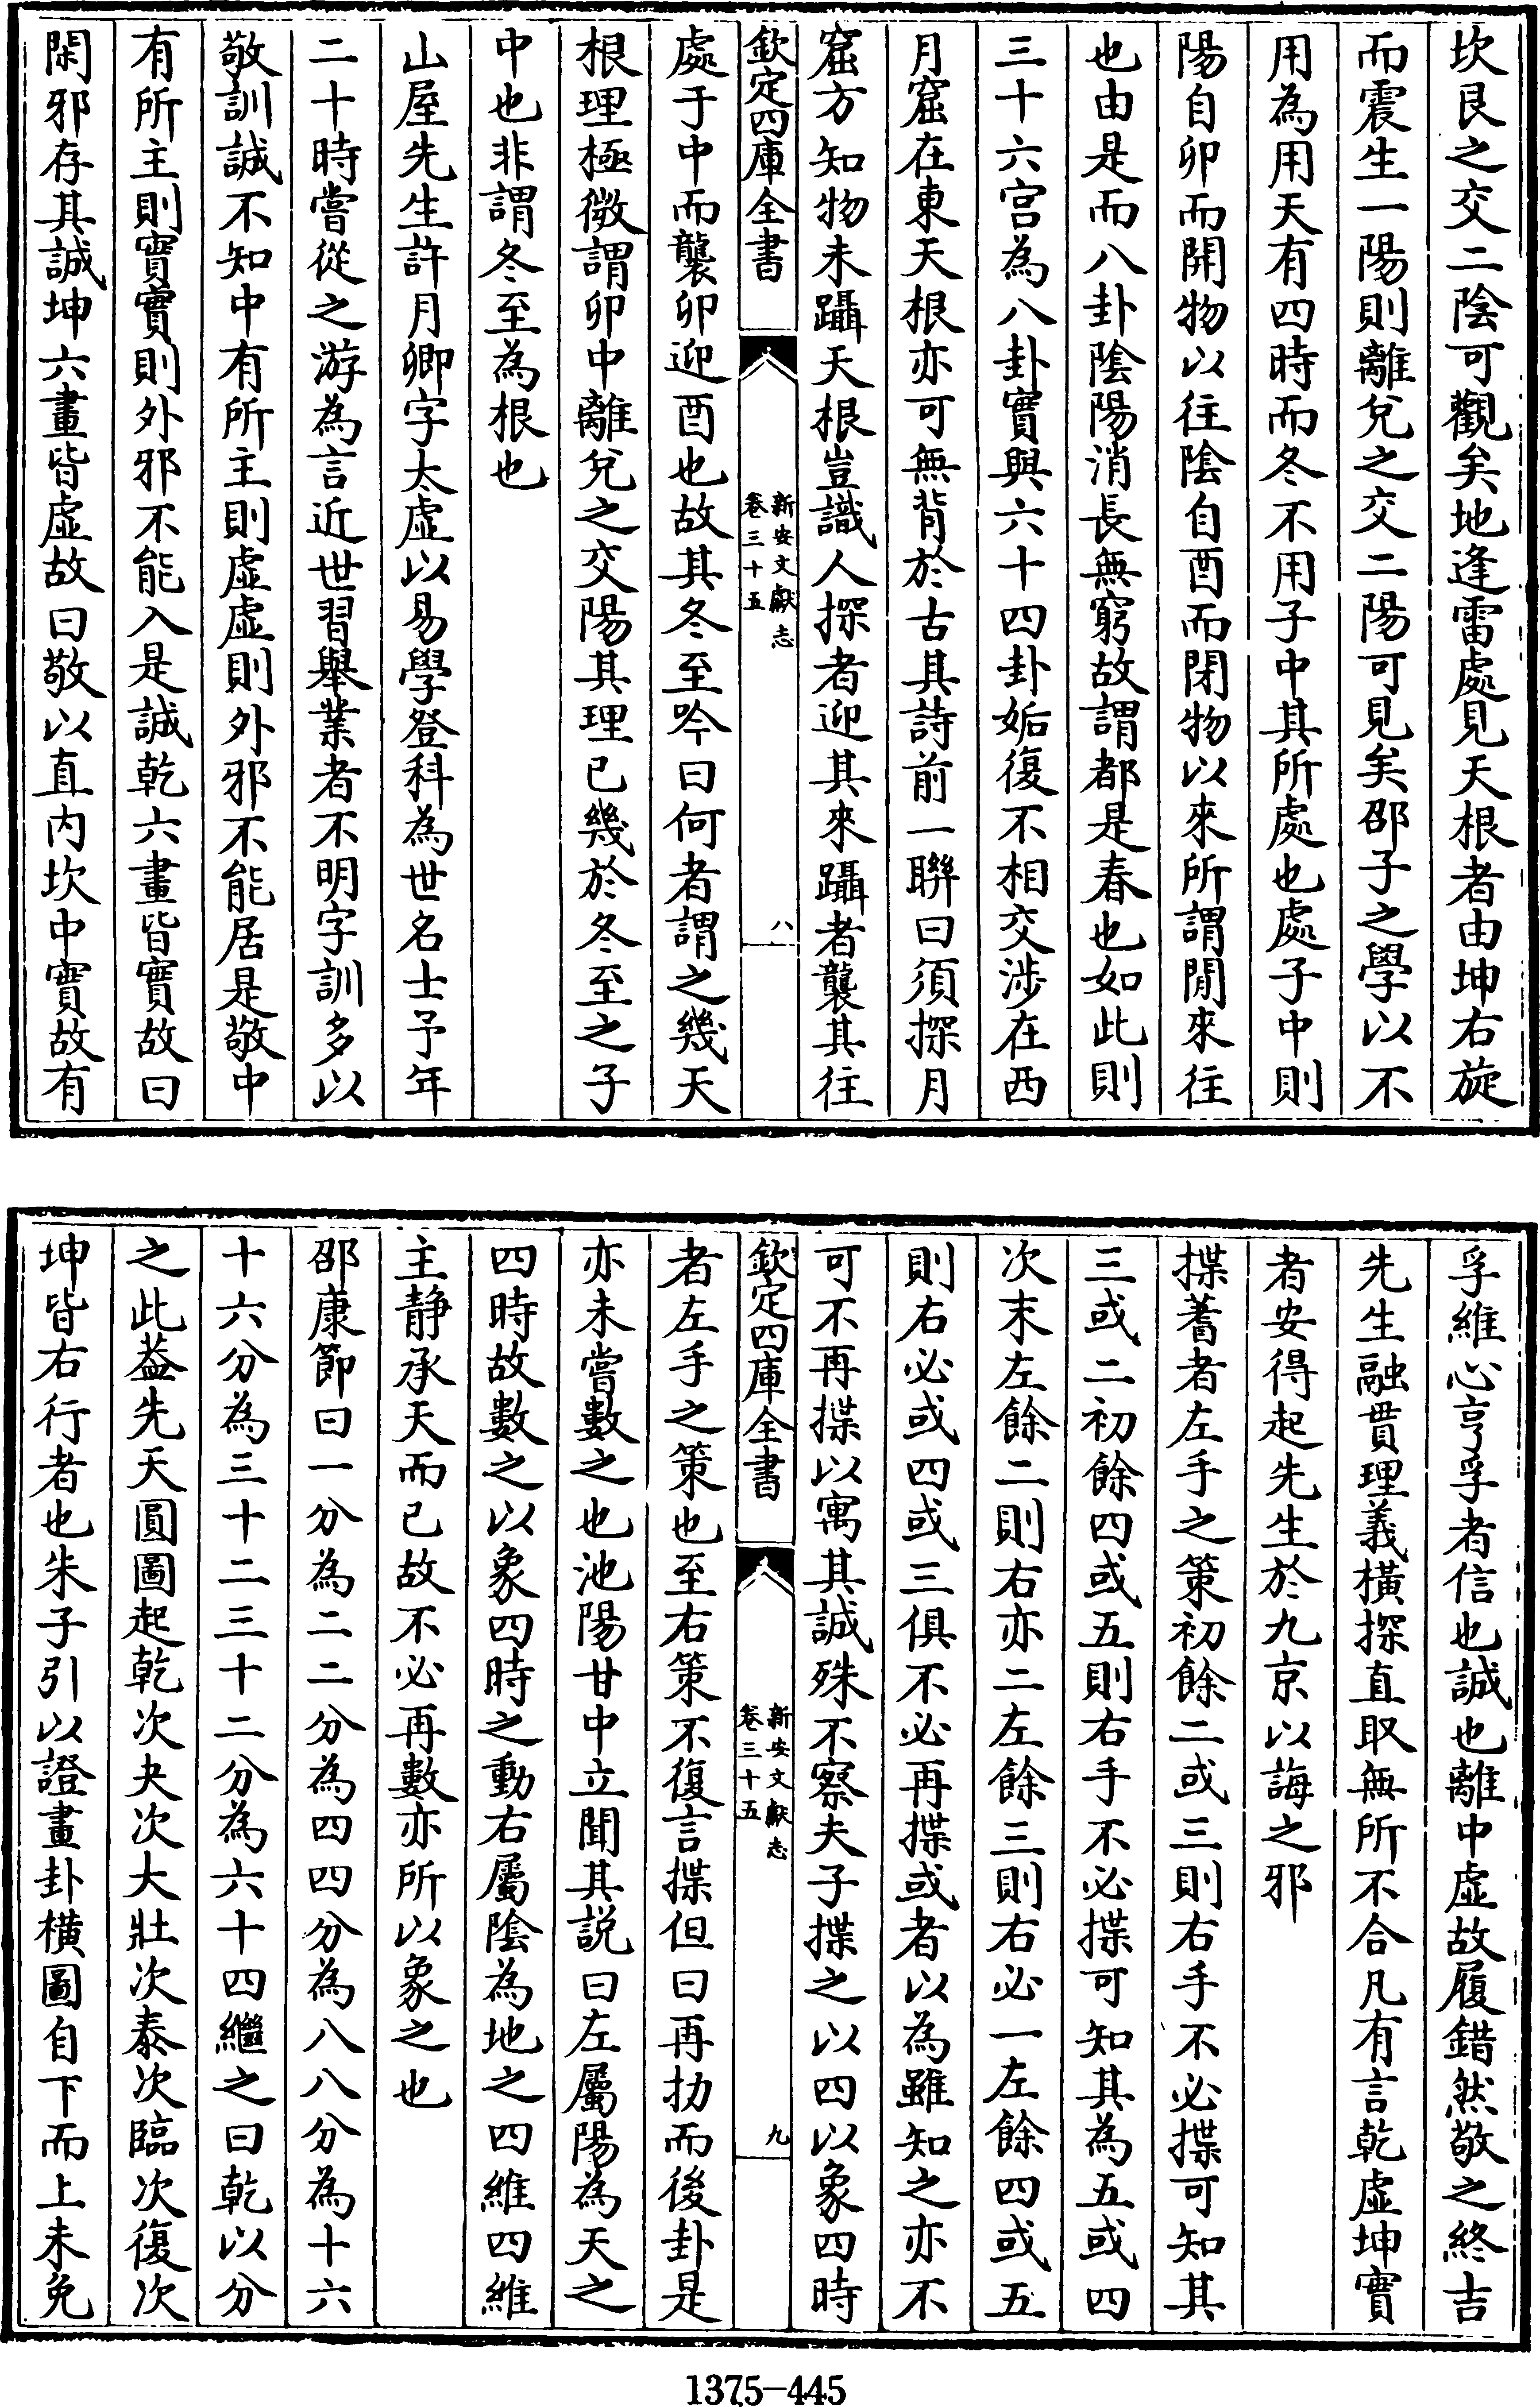 坎艮之交二陰可觀矣地逢雷處見天根者由坤右旋
而震生一陽則離兌之交二陽可見矣邵子之學以不
用為用天有四時而冬不用子中其所處也處子中則
陽自卯而開物以往陰自酉而閉物以來所謂閒來往
也由是而八卦陰陽消長無窮故謂都是春也如此則
三十六宫為八卦實與六十四卦姤復不相交涉在西
月窟在東天根亦可無背於古其詩前一聯曰須探月
窟方知物未躡天根豈識人探者迎其來躡者襲其往
欽定四庫全書
新安文獻志
卷三十五
八
處于中而襲卯迎酉也故其冬至吟曰何者謂之幾天
根理極微謂卯中離兌之交陽其理已幾於冬至之子
中也非謂冬至為根也
山屋先生許月卿字太虚以易學登科為世名士予年
二十時嘗從之游為言近世習舉業者不明字訓多以
敬訓誠不知中有所主則虚虚則外邪不能居是敬中
有所主則實實則外邪不能入是誠乾六畫皆實故曰
閑邪存其誠坤六畫皆虚故曰敬以直内坎中實故有
孚維心亨孚者信也誠也離中虚故履錯然敬之終吉
先生融貫理義橫探直取無所不合凡有言乾虚坤實
者安得起先生於九京以誨之邪
揲蓍者左手之策初餘二或三則右手不必揲可知其
三或二初餘四或五則右手不必揲可知其為五或四
次末左餘二則右亦二左餘三則右必一左餘四或五
則右必或四或三俱不必再揲或者以為雖知之亦不
可不再揲以寓其誠殊不察夫子揲之以四以象四時
欽定四庫全書
新安文獻志
卷三十五
九
者左手之策也至右策不復言揲但曰再扐而後卦是
亦未嘗數之也池陽甘中立聞其説曰左屬陽為天之
四時故數之以象四時之動右屬陰為地之四維四維
主静承天而已故不必再數亦所以象之也
邵康節曰一分為二二分為四四分為八八分為十六
十六分為三十二三十二分為六十四繼之曰乾以分
之此葢先天圓圖起乾次夬次大壯次泰次臨次復次
坤皆右行者也朱子引以證畫卦橫圖自下而上未免
1375-445